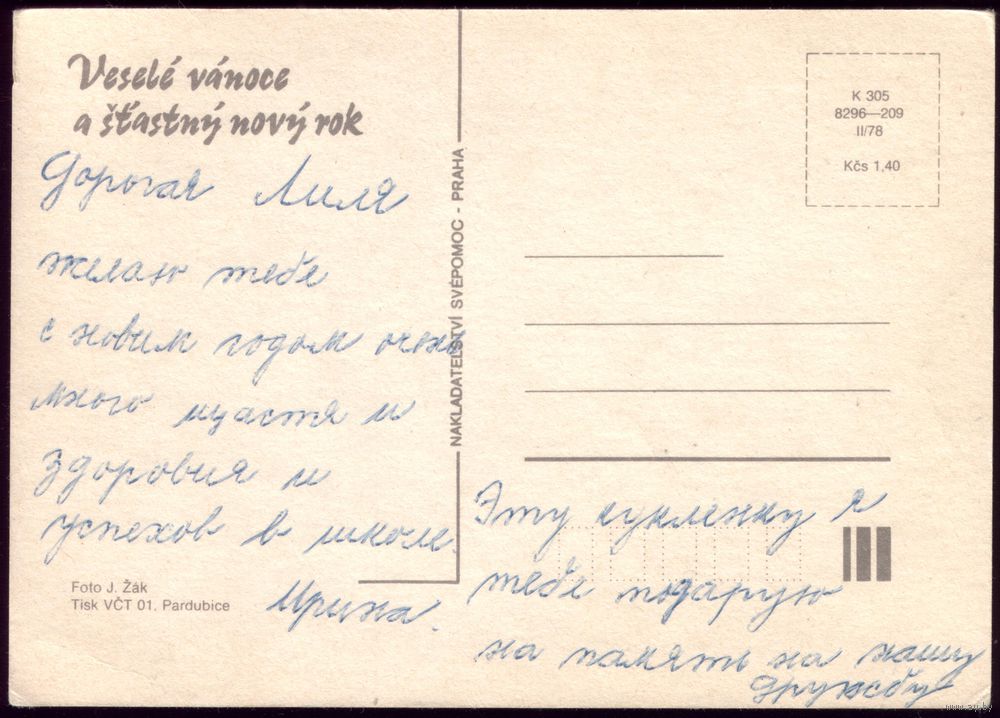 Veselé vánoce
a šťastný nový rok
Дорогая Лиля
желаю тебе
с новим годом очень
много щастя и
здоровия и
успехов в школи.
Ирина.
Foto J. Žák
Tisk VČT 01. Pardubice
NAKLADATELSTVÍ SVÉPOMOC - PRAHA
K 305
8296—209
II/78
Kčs 1,40
Эту кукленку я
тебе подарую
на память на нашу
дружбу